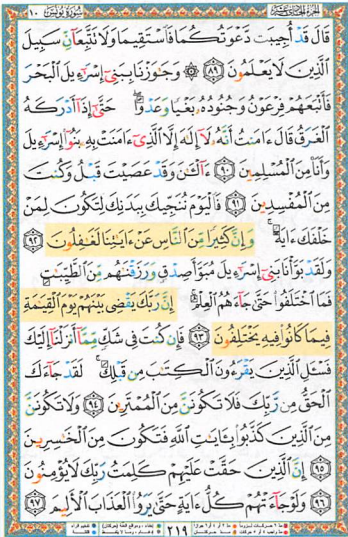 الجزء الحادي عشر سورة يونس ١٠
قَالَ قَدْ أُجِيبَت دَّعْوَتُكُمَا فَاسْتَقِيمَا وَلَا تَتَّبِعَانِّ سَبِيلَ
الَّذِينَ لَا يَعْلَمُونَ ﴿٨٩﴾ ۞ وَجَاوَزْنَا بِبَنِي إِسْرَاءِيلَ الْبَحْرَ
فَأَتْبَعَهُمْ فِرْعَوْنُ وَجُنُودُهُ بَغْيًا وَعَدْوًا ۖ حَتَّىٰ إِذَا أَدْرَكَهُ
الْغَرَقُ قَالَ ءَامَنتُ أَنَّهُ لَا إِلَٰهَ إِلَّا الَّذِي ءَامَنَتْ بِهِ بَنُوا إِسْرَاءِيلَ
وَأَنَا۠ مِنَ الْمُسْلِمِينَ ﴿٩٠﴾ ءَآلْـَٰنَ وَقَدْ عَصَيْتَ قَبْلُ وَكُنتَ
مِنَ الْمُفْسِدِينَ ﴿٩١﴾ فَالْيَوْمَ نُنَجِّيكَ بِبَدَنِكَ لِتَكُونَ لِمَنْ
خَلْفَكَ ءَايَةً ۚ وَإِنَّ كَثِيرًا مِّنَ النَّاسِ عَنْ ءَايَٰتِنَا لَغَٰفِلُونَ ﴿٩٢﴾
وَلَقَدْ بَوَّأْنَا بَنِي إِسْرَاءِيلَ مُبَوَّأَ صِدْقٍ وَرَزَقْنَٰهُم مِّنَ الطَّيِّبَٰتِ
فَمَا اخْتَلَفُوا حَتَّىٰ جَاءَهُمُ الْعِلْمُ ۚ إِنَّ رَبَّكَ يَقْضِي بَيْنَهُمْ يَوْمَ الْقِيَٰمَةِ
فِيمَا كَانُوا فِيهِ يَخْتَلِفُونَ ﴿٩٣﴾ فَإِن كُنتَ فِي شَكٍّ مِّمَّا أَنزَلْنَا إِلَيْكَ
فَسْـَٔلِ الَّذِينَ يَقْرَءُونَ الْكِتَٰبَ مِن قَبْلِكَ ۚ لَقَدْ جَاءَكَ
الْحَقُّ مِن رَّبِّكَ فَلَا تَكُونَنَّ مِنَ الْمُمْتَرِينَ ﴿٩٤﴾ وَلَا تَكُونَنَّ
مِنَ الَّذِينَ كَذَّبُوا بِـَٔايَٰتِ اللَّهِ فَتَكُونَ مِنَ الْخَٰسِرِينَ
﴿٩٥﴾ إِنَّ الَّذِينَ حَقَّتْ عَلَيْهِمْ كَلِمَتُ رَبِّكَ لَا يُؤْمِنُونَ
﴿٩٦﴾ وَلَوْ جَاءَتْهُمْ كُلُّ ءَايَةٍ حَتَّىٰ يَرَوُا الْعَذَابَ الْأَلِيمَ ﴿٩٧﴾
٢١٩